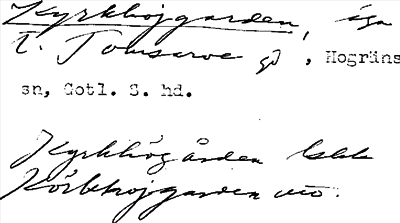 Kyrkhöjgarden, äga
t. Tomsarve gd, Hogräns
sn, Gotl. S. hd.
Kyrkhögården
Körkhojgarden